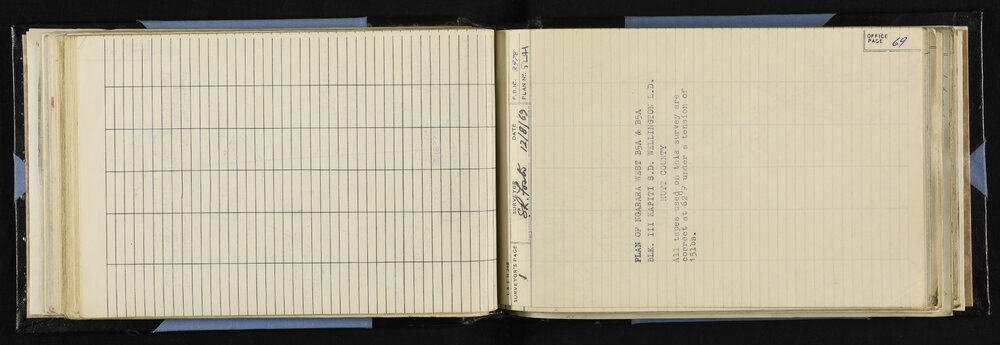 OFFICE PAGE 69
F.B. NO. 3978
PLAN NO.
DATE 12/8/69
SURVEYOR
SURVEYOR'S PAGE 1
PLAN OF NGARARA WEST B5A & B5A
BLK. III KAPITI S.D. WELLINGTON L.D.
HUTT COUNTY
All tapes used on this survey are
correct at 62°F under a tension of
15lbs.